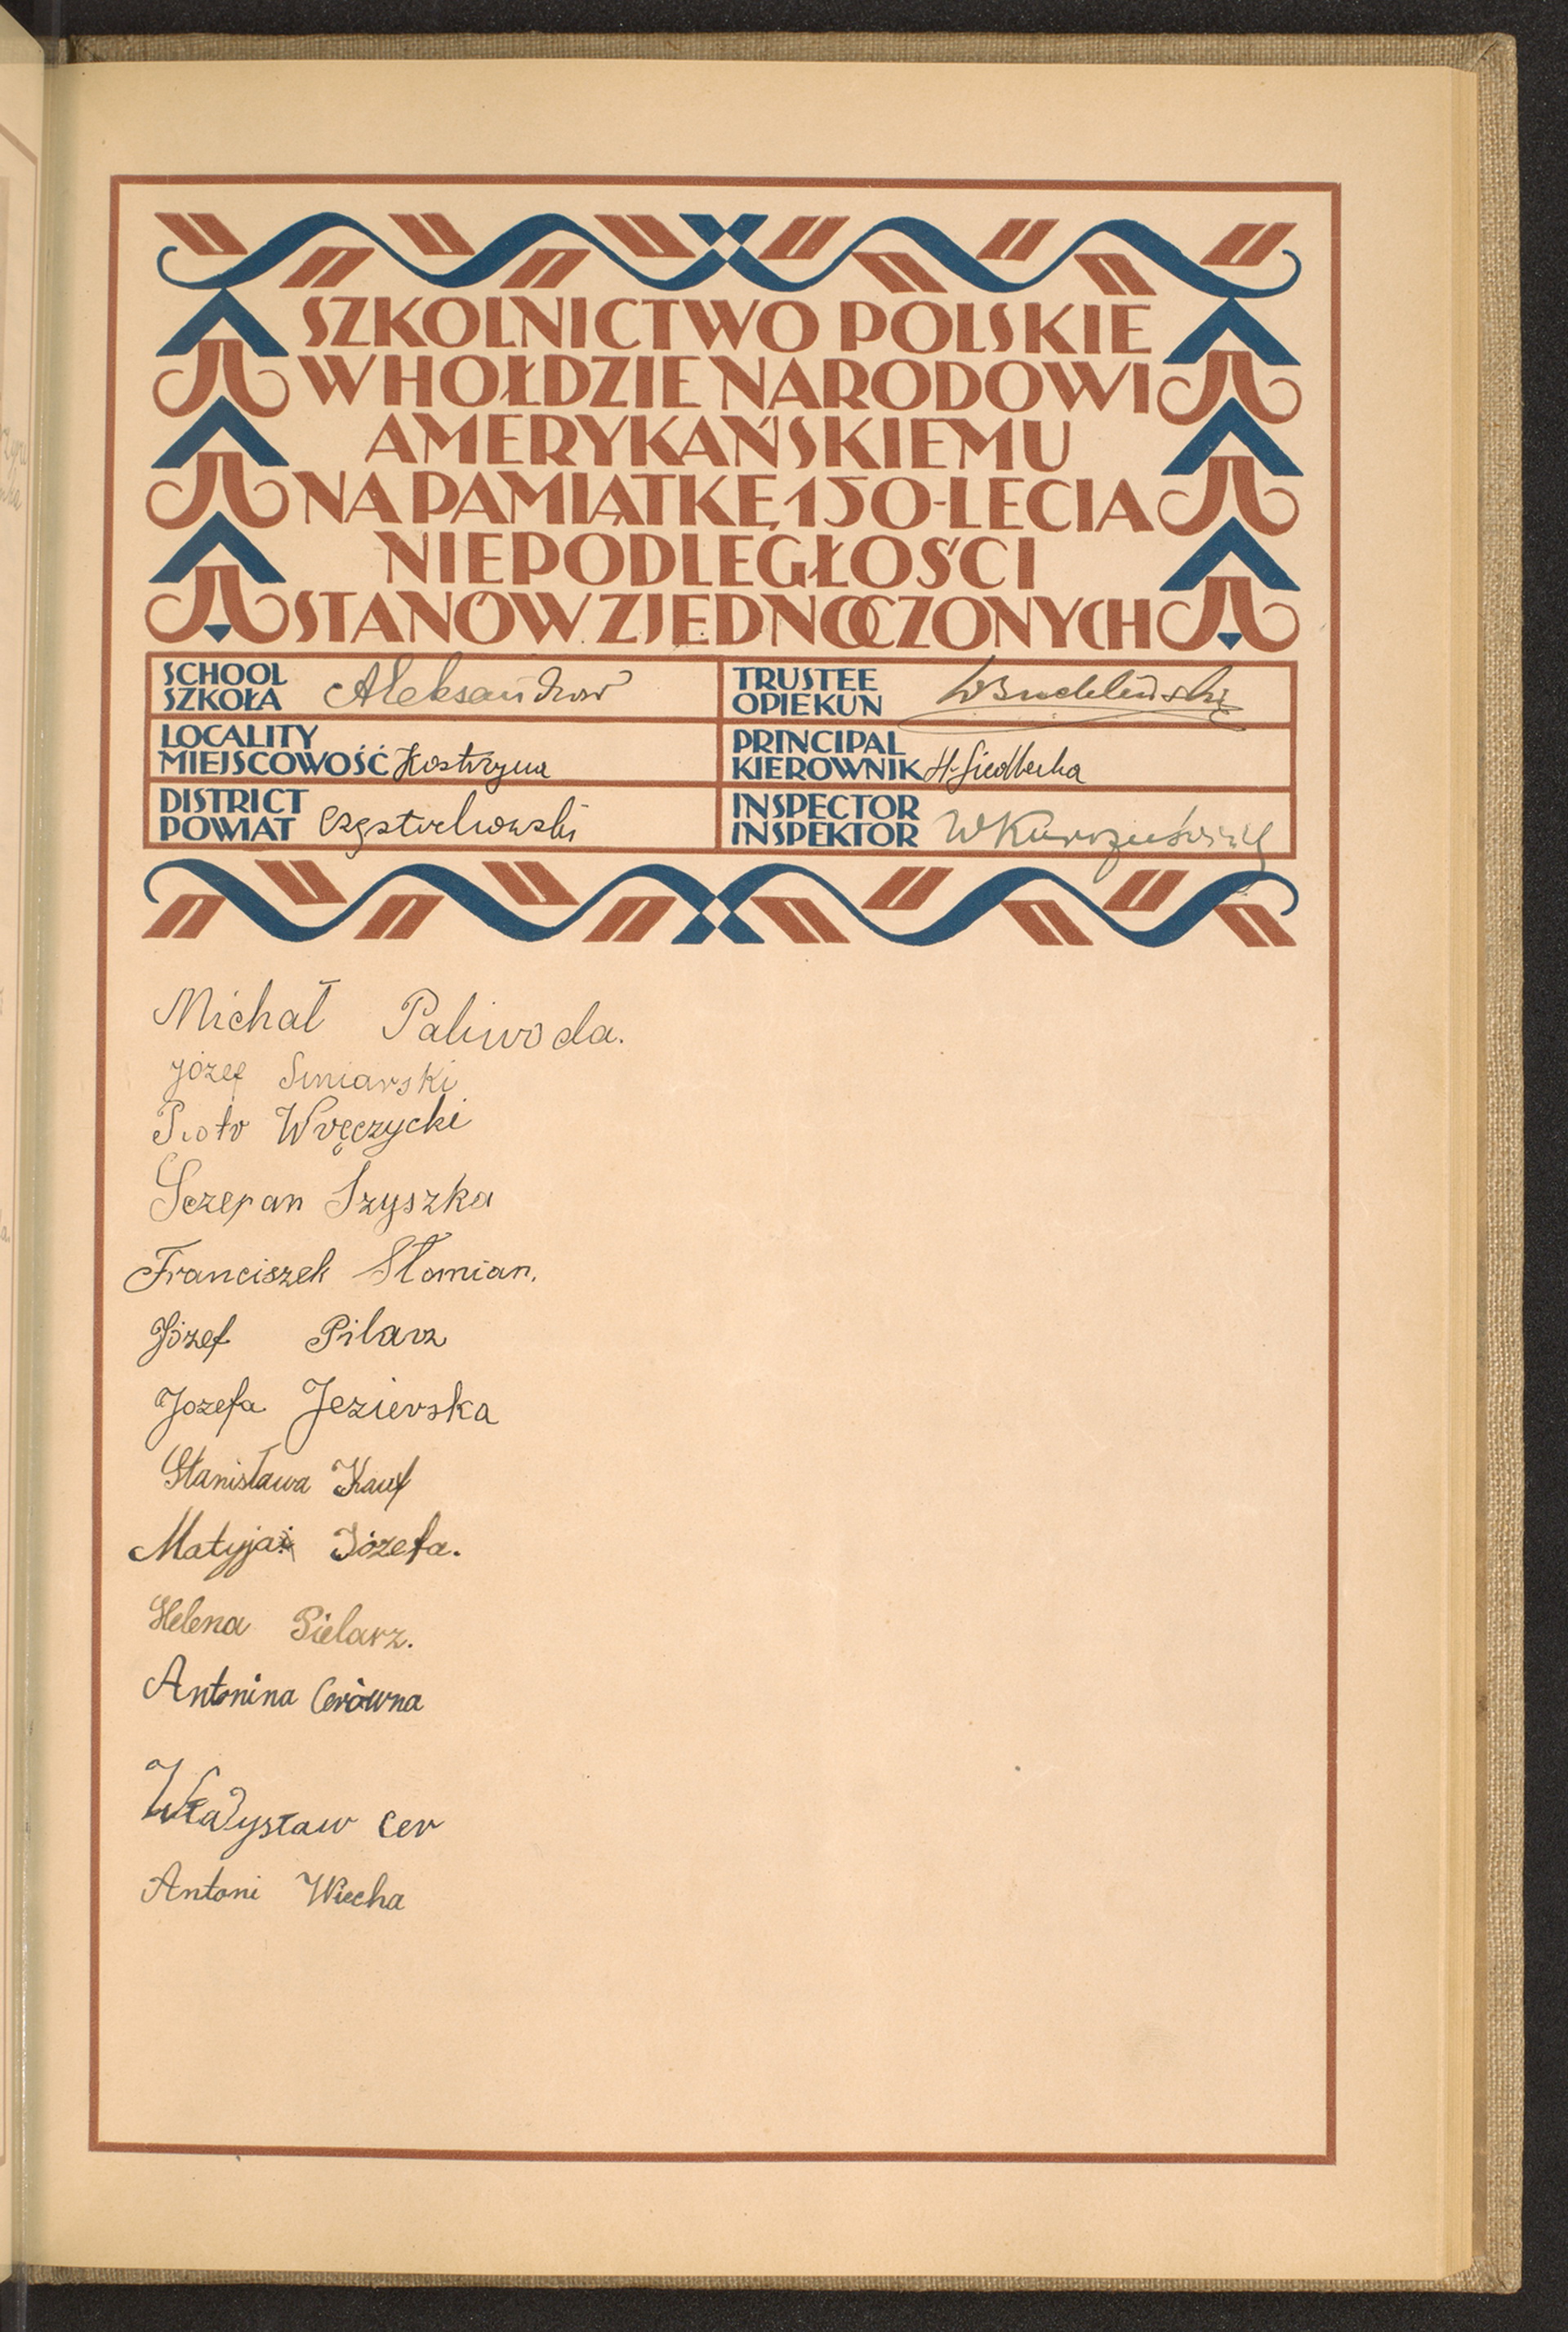 SZKOLNICTWO POLSKIE
W HOŁDZIE NARODOWI
AMERYKAŃSKIEMU
NA PAMIĄTKĘ 150-LECIA
NIEPODLEGŁOŚCI
STANÓW ZJEDNOCZONYCH
SCHOOL
SZKOŁA Aleksandrow
TRUSTEE
OPIEKUN
LOCALITY
MIEJSCOWOŚĆ Kostrzyna
PRINCIPAL
KIEROWNIK H. Siedlecka
DISTRICT
POWIAT Częstochowski
INSPECTOR
INSPEKTOR
Michał Paliwoda.
Józef Smiarski
Piotr Wręczycki
Sczepan Szyszka
Franciszek Słomian.
Józef Pilarz
Jozefa Jezierska
Stanisława Kauf
Matyja Józefa.
Helena Pielarz.
Antonina Cerówna
Władysław Cer
Antoni Wiecha